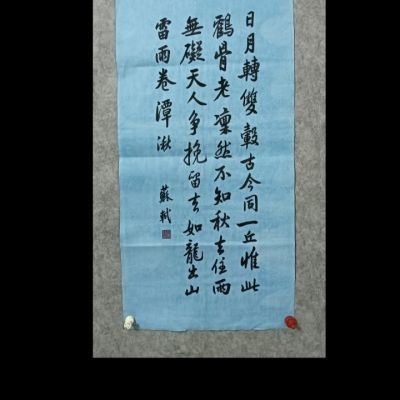 日月轉雙轂古今同一丘惟此
鶴骨老凜然不知秋去住兩
無礙天人爭挽留去如龍出山
雷雨卷潭湫
蘇軾